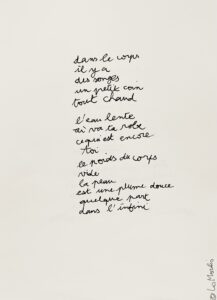 dans le corps
il y a
des songes
un petit coin
tout chaud
l'eau lente
où va ta robe
ce qui est encore
toi
le poids du corps
vide
la peau
est une plume douce
quelque part
dans l'infini